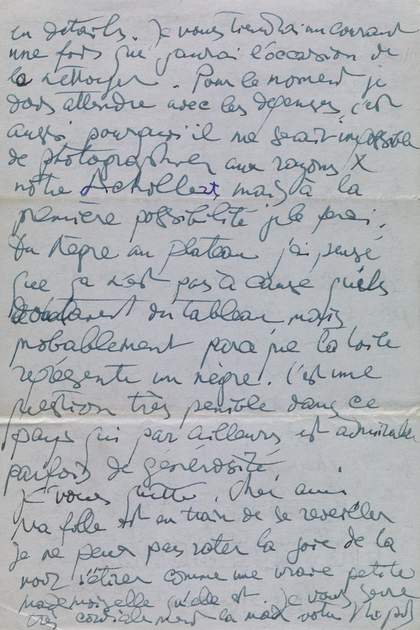 en détails. Je vous tiendrai au courant
une fois que j'aurai l'occasion de
le nettoyer. Pour le moment je
dois attendre avec les dépenses, c'est
aussi pourquoi il me serait impossible
de photographier aux rayons X
notre mais à la
première possibilité je le ferai.
Du Nègre au plateau j'ai pensé
que ça n'est pas à cause qu'ils
doutent du tableau mais
probablement parce que la toile
représente un nègre. C'est une
question très pénible dans ce
pays qui par ailleurs est admirable
parfois de générosité.
Je vous quitte, cher ami.
Ma fille est en train de se réveiller
Je ne peux pas rater la joie de la
voir s'étirer comme une vraie petite
mademoiselle qu'elle est. Je vous serre
très cordialement la main votre